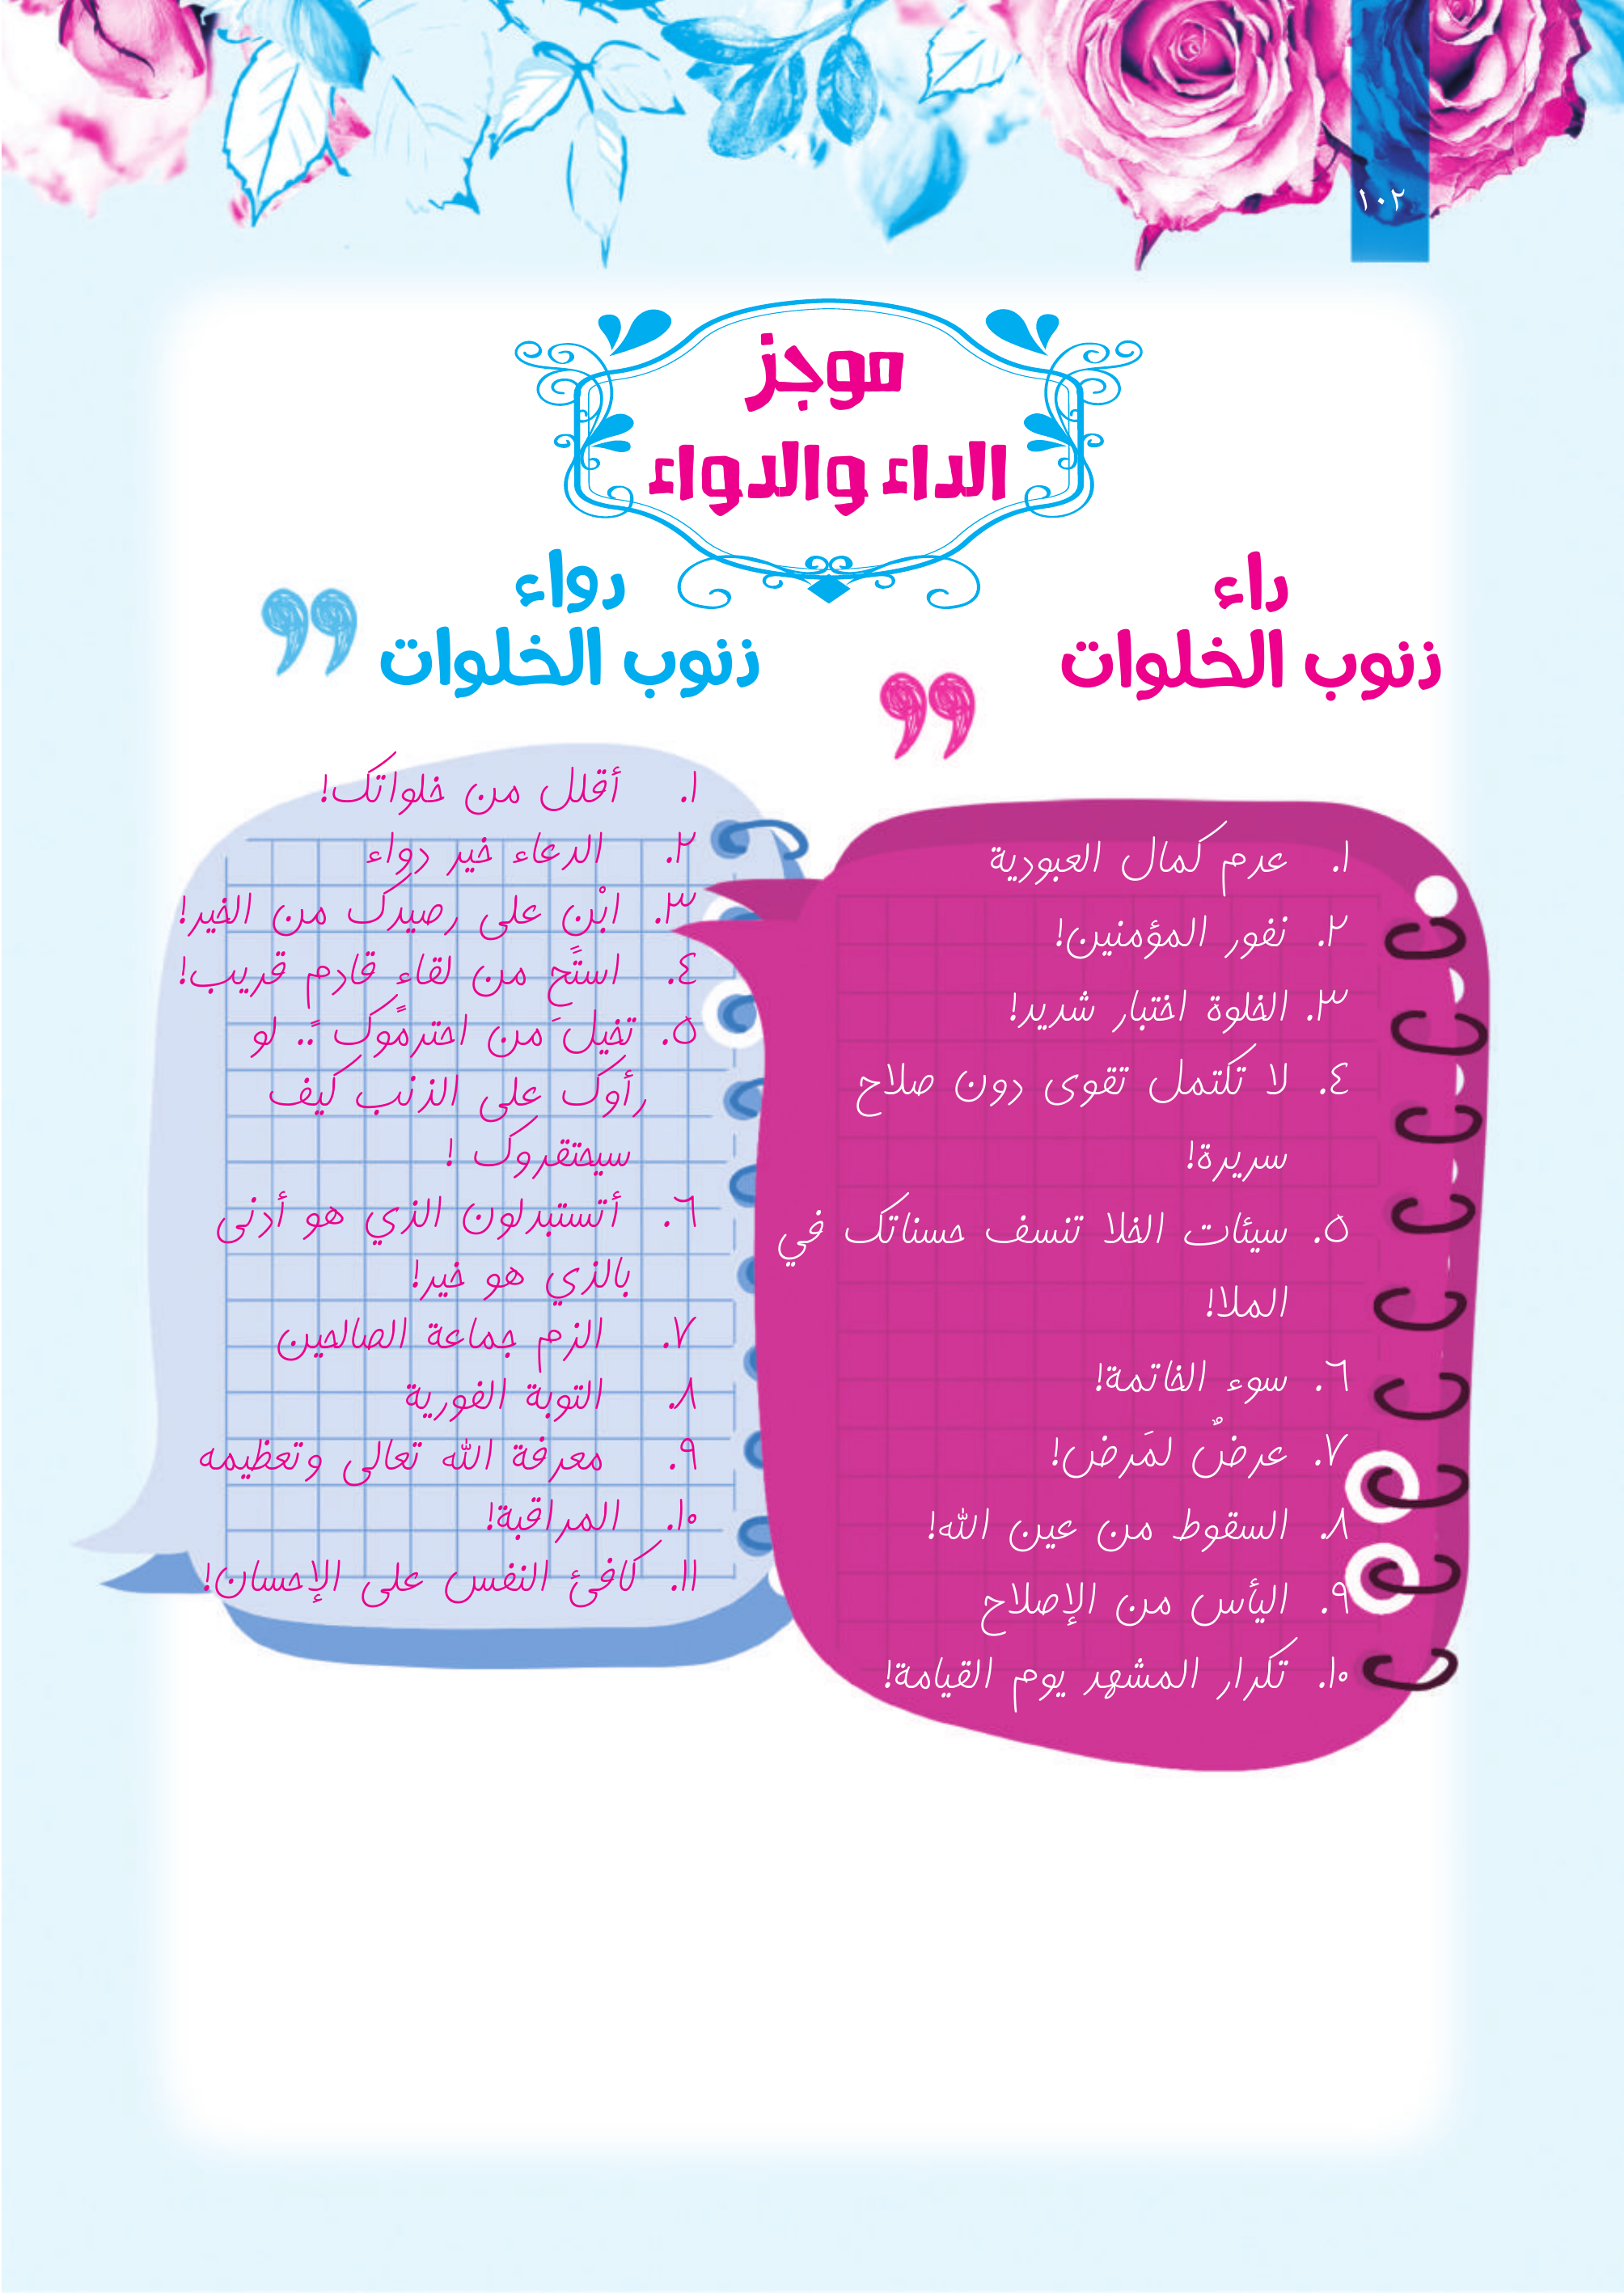 ١٠٢
موجز
الداء والدواء
داء
ذنوب الخلوات
١. عدم كمال العبودية
٢. نفور المؤمنين!
٣. الخلوة اختبار شديد!
٤. لا تكتمل تقوى دون صلاح
سريرة!
٥. سيئات الخلا تنسف حسناتك في
الملا!
٦. سوء الخاتمة!
٧. عرضٌ لمَرض!
٨. السقوط من عين الله!
٩. اليأس من الإصلاح
١٠. تكرار المشهد يوم القيامة!
دواء
ذنوب الخلوات
١. أقلل من خلواتك!
٢. الدعاء خير دواء
٣. ابْن على رصيدك من الخير!
٤. استَحِ من لقاءٍ قادم قريب!
٥. تخيل َمن احترمَوك .. لو
رأوك على الذنب كيف
سيحتقروك !
٦. أتستبدلون الذي هو أدنى
بالذي هو خير!
٧. الزم جماعة الصالحين
٨. التوبة الفورية
٩. معرفة الله تعالى وتعظيمه
١٠. المراقبة!
١١. كافئ النفس على الإحسان!